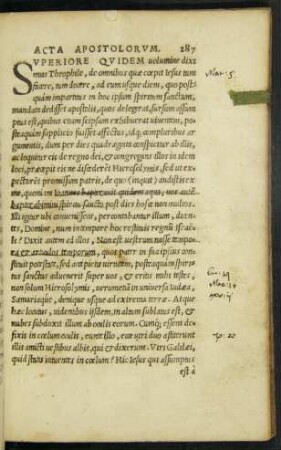 ACTA APOSTOLORVM. 287
SVPERIORE QVIDEM uolumine dixi
mus Theophile, de omnibus quæ cœpit Iesus tum
facere, tum docere, ad eum usque diem, quo postea
quàm impartitus in hoc ipsum spiritum sanctum,
mandata dedisset apostolis, quos delegerat, sursum assum
ptus est, quibus etiam seipsum exhibuerat uiuentem, po
stea quàm supplicio fuisset affectus, idq́; compluribus ar
gumentis, dum per dies quadraginta conspicitur ab illis,
ac loquitur eis de regno dei, & congregans illos in idem
loci, præcepit eis ne discederent Hierosolymis, sed ut ex
pectarent promissum patris, de quo (inquit) audistis ex
me, quoniam Ioannes baptizauit quidem aqua, uos autem
baptizabimini spiritu sancto, post dies hosce non multos.
Illi igitur ubi conuenissent, percontabantur illum, dicen
tes, Domine, num in tempore hoc restituis regnũ Israë-
li? Dixit autem ad illos, Non est uestrum nosse tempora
et articulos temporum, quos pater in sua ipsius con
stituit potestate, sed accipietis uirtutem, postea
spiritus sanctus aduenerit super uos, & eritis mihi testes,
non solum Hierosolymis, uerumetiã in uniuersa Iudæa,
Samariaque, denique usque ad extremum terræ. Atque
hæc locutus, uidentibus ipsis, in altum sublatus est, &
nubes subduxit illum ab oculis eorum. Cunq́; essent de-
fixis in cœlum oculis, eunte illo, ecce uiri duo astiterunt
illis amicti uestibus albis, qui & dixerunt. Viri Galilæi,
quid statis intuentes in cœlum? Hic Iesus qui assumptus
est à